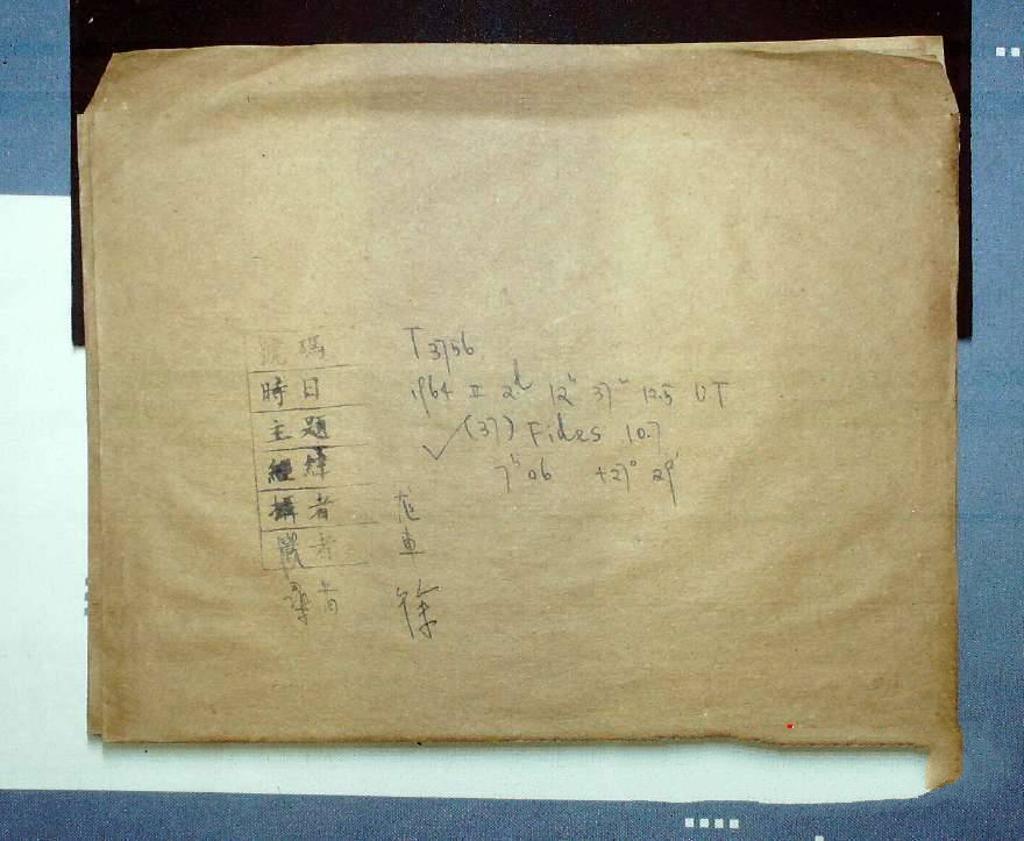 號碼 T3756
時日 1964 II 2d 12h 37m 12.5 UT
主題 ✓(37) Fides 10.7
經緯 7h 06 +27° 29'
攝者
者 車
者 徐